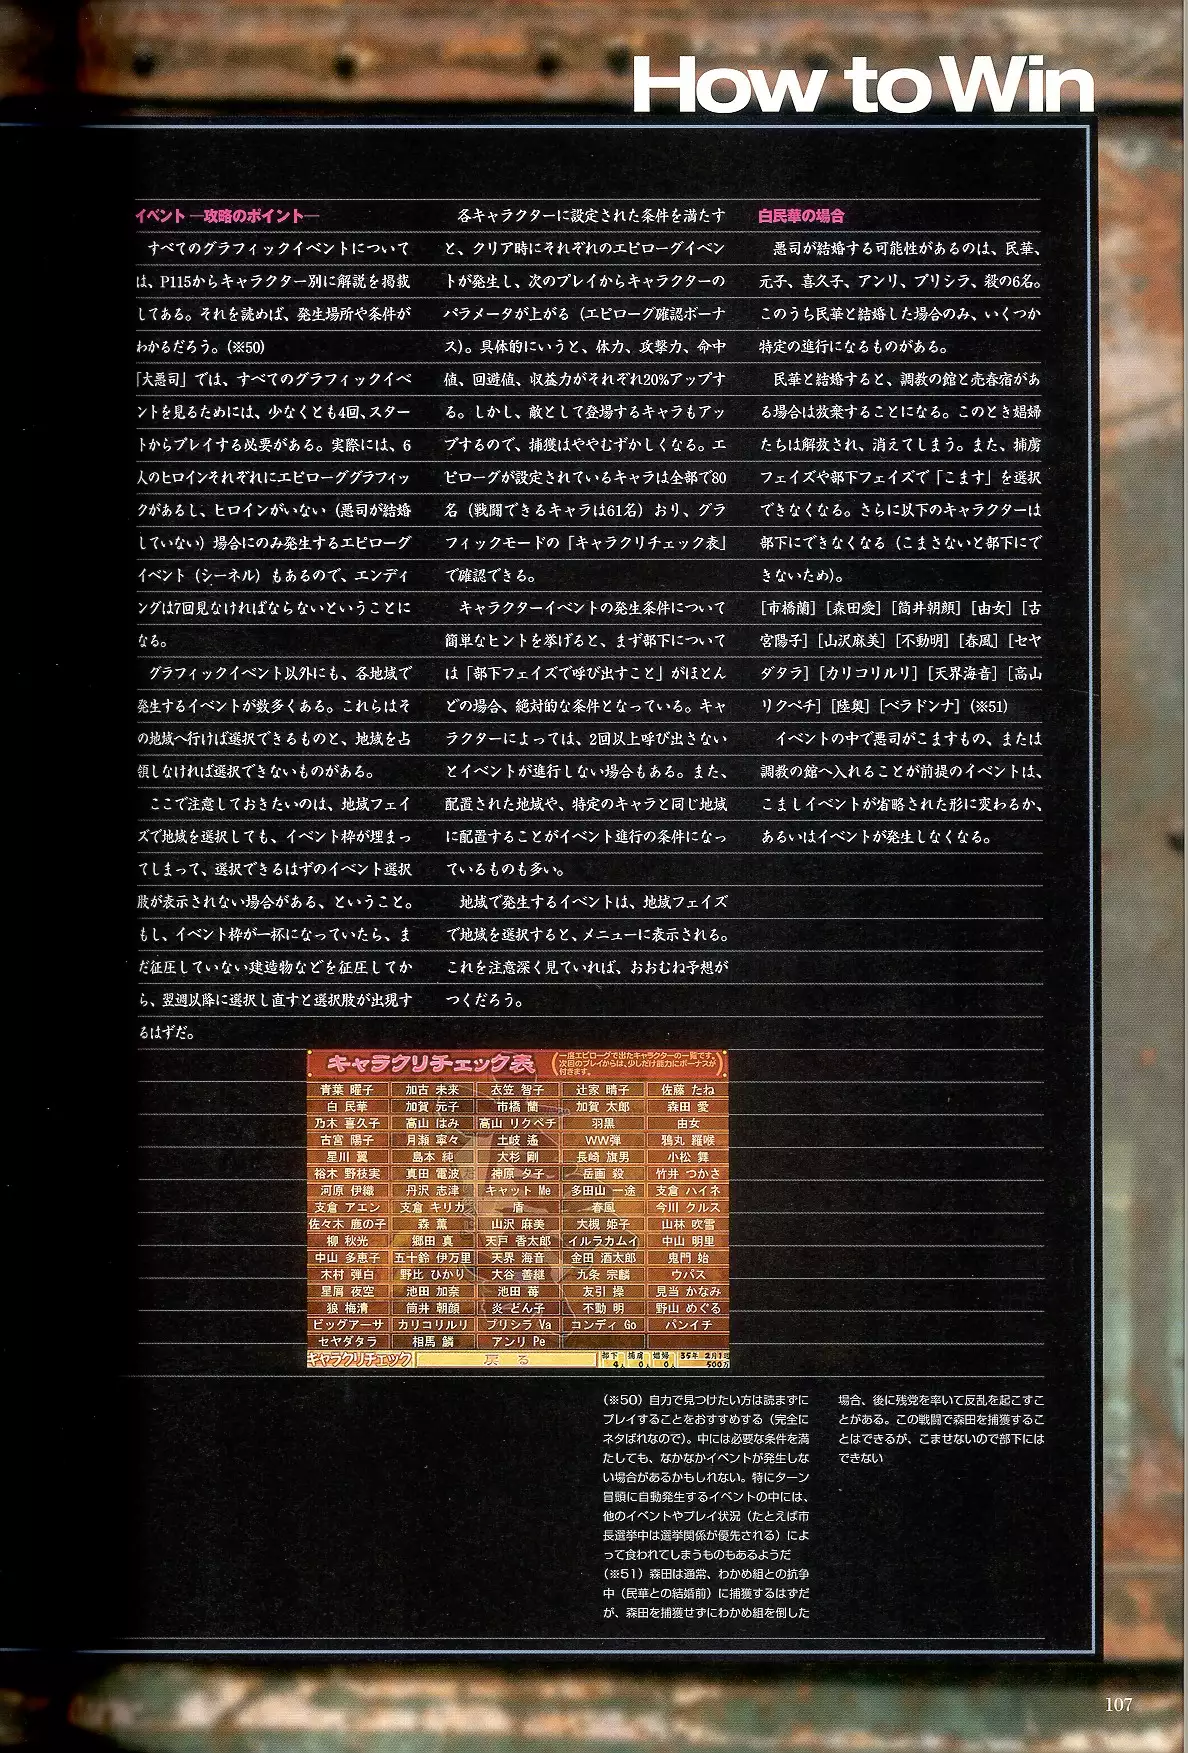 How to Win
イベント ―攻略のポイント―
すべてのグラフィックイベントについて
は、P115からキャラクター別に解説を掲載
してある。それを読めば、発生場所や条件が
わかるだろう。(※50)
「大悪司」では、すべてのグラフィックイベ
ントを見るためには、少なくとも4回、スター
トからプレイする必要がある。実際には、6
人のヒロインそれぞれにエピローググラフィッ
クがあるし、ヒロインがいない（悪司が結婚
していない）場合にのみ発生するエピローグ
イベント（シーネル）もあるので、エンディ
ングは7回見なければならないということに
なる。
グラフィックイベント以外にも、各地域で
発生するイベントが数多くある。これらはそ
の地域へ行けば選択できるものと、地域を占
領しなければ選択できないものがある。
ここで注意しておきたいのは、地域フェイ
ズで地域を選択しても、イベント枠が埋まっ
てしまって、選択できるはずのイベント選択
肢が表示されない場合がある、ということ。
もし、イベント枠が一杯になっていたら、ま
だ征圧していない建造物などを征圧してか
ら、翌週以降に選択し直すと選択肢が出現す
るはずだ。
各キャラクターに設定された条件を満たす
と、クリア時にそれぞれのエピローグイベン
トが発生し、次のプレイからキャラクターの
パラメータが上がる（エピローグ確認ボーナ
ス）。具体的にいうと、体力、攻撃力、命中
値、回避値、収益力がそれぞれ20%アップす
る。しかし、敵として登場するキャラもアッ
プするので、捕獲はややむずかしくなる。エ
ピローグが設定されているキャラは全部で80
名（戦闘できるキャラは61名）おり、グラ
フィックモードの「キャラクリチェック表」
で確認できる。
キャラクターイベントの発生条件について
簡単なヒントを挙げると、まず部下について
は「部下フェイズで呼び出すこと」がほとん
どの場合、絶対的な条件となっている。キャ
ラクターによっては、2回以上呼び出さない
とイベントが進行しない場合もある。また、
配置された地域や、特定のキャラと同じ地域
に配置することがイベント進行の条件になっ
ているものも多い。
地域で発生するイベントは、地域フェイズ
で地域を選択すると、メニューに表示される。
これを注意深く見ていれば、おおむね予想が
つくだろう。
白民華の場合
悪司が結婚する可能性があるのは、民華、
元子、喜久子、アンリ、プリシラ、殺の6名。
このうち民華と結婚した場合のみ、いくつか
特定の進行になるものがある。
民華と結婚すると、調教の館と売春宿があ
る場合は放棄することになる。このとき娼婦
たちは解放され、消えてしまう。また、捕虜
フェイズや部下フェイズで「こます」を選択
できなくなる。さらに以下のキャラクターは
部下にできなくなる（こまさないと部下にで
きないため）。
［市橋蘭］［森田愛］［筒井朝顔］［由女］［古
宮陽子］［山沢麻美］［不動明］［春風］［セヤ
ダタラ］［カリコリルリ］［天界海音］［高山
リクペチ］［陸奥］［ベラドンナ］(※51)
イベントの中で悪司がこますもの、または
調教の館へ入れることが前提のイベントは、
こましイベントが省略された形に変わるか、
あるいはイベントが発生しなくなる。
キャラクリチェック表
一度エピローグで出たキャラクターの一覧です。
次回のプレイからは、少しだけ能力にボーナスが
付きます。
青葉 曜子 加古 未来 衣笠 智子 辻家 晴子 佐藤 たね
白 民華 加賀 元子 市橋 蘭 加賀 太郎 森田 愛
乃木 喜久子 高山 はみ 高山 リクペチ 羽黒 由女
古宮 陽子 月瀬 寧々 土岐 遙 WW弾 鴉丸 羅喉
星川 翼 島本 純 大杉 剛 長崎 旗男 小松 舞
裕木 野枝実 真田 電波 神原 夕子 岳画 殺 竹井 つかさ
河原 伊織 丹沢 志津 キャット Me 多田山 一途 支倉 ハイネ
支倉 アエン 支倉 キリカ 盾 春風 今川 クルス
佐々木 鹿の子 森 薫 山沢 麻美 大槻 姫子 山林 吹雪
柳 秋光 郷田 真 天戸 香太郎 イルラカムイ 中山 明里
中山 多恵子 五十鈴 伊万里 天界 海音 金田 酒太郎 鬼門 始
木村 弾白 野比 ひかり 大谷 善継 九条 宗麟 ウパス
星屑 夜空 池田 加奈 池田 苺 友引 操 見当 かなみ
狼 梅清 筒井 朝顔 炎 どん子 不動 明 野山 めぐる
ビッグアーサ カリコリルリ プリシラ Va コンディ Go バンイチ
セヤダタラ 相馬 鱗 アンリ Pe
キャラクリチェック 戻る 部下 4人 捕虜 0人 娼婦 0人 35年 2月1週 500万
(※50) 自力で見つけたい方は読まずに
プレイすることをおすすめする（完全に
ネタばれなので）。中には必要な条件を満
たしても、なかなかイベントが発生しな
い場合があるかもしれない。特にターン
冒頭に自動発生するイベントの中には、
他のイベントやプレイ状況（たとえば市
長選挙中は選挙関係が優先される）によ
って食われてしまうものもあるようだ
(※51) 森田は通常、わかめ組との抗争
中（民華との結婚前）に捕獲するはずだ
が、森田を捕獲せずにわかめ組を倒した
場合、後に残党を率いて反乱を起こすこ
とがある。この戦闘で森田を捕獲するこ
とはできるが、こませないので部下には
できない
107